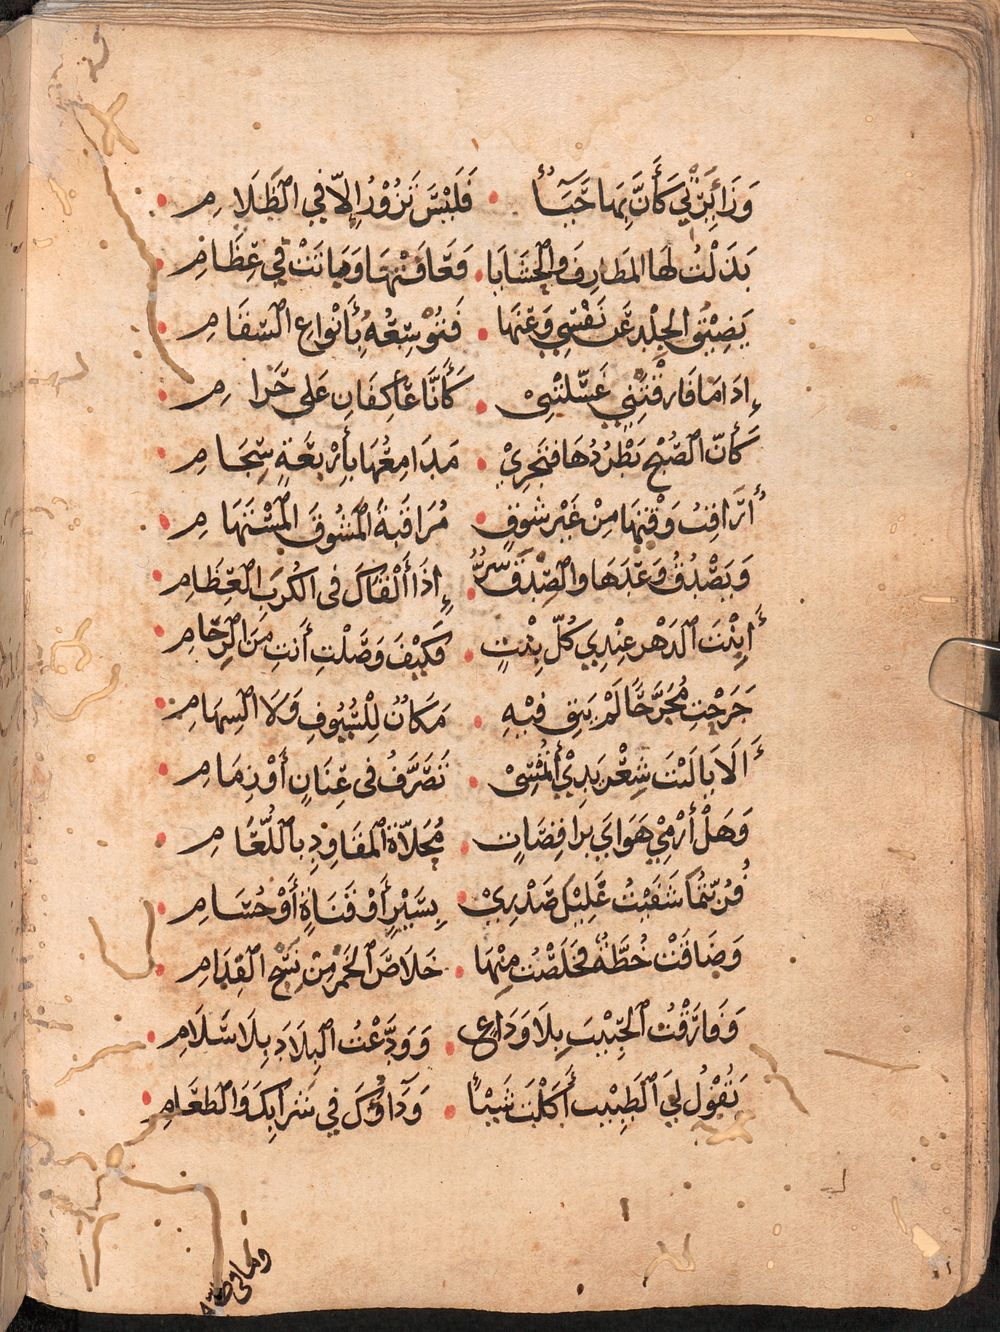 وَزَائِرَتِي كَأَنَّ بِهَا حَيَآءً فَلَيْسَ تَزُوْرُ إِلَّا فِي الظَّلَامِ
بَذَلْتُ لَهَا الْمَطَارِفَ وَالْحَشَايَا فَعَافَتْهَا وَبَاتَتْ فِي عِظَامِ
يَضِيْقُ الْجِلْدُ عَنْ نَفْسِي وَعَنْهَا فَتُوسِعُهُ بِأَنْوَاعِ السَّقَامِ
إِذَا مَا فَارَقَتْنِي غَسَّلَتْنِيْ كَأَنَّا عَاكِفَانِ عَلَى حَرَامِ
كَأَنَّ الصُّبْحَ يَطْرُدُهَا فَتَجْرِيْ مَدَامِعُهَا بِأَرْبَعَةٍ سِجَامِ
أُرَاقِبُ وَقْتَهَا مِنْ غَيْرِ شَوْقٍ مُرَاقَبَةَ الْمَشُوقِ الْمُسْتَهَامِ
وَيَصْدُقُ وَعْدُهَا وَالصِّدْقُ شَرٌّ إِذَا أَلْقَاكَ فِي الْكُرَبِ الْعِظَامِ
أَبِنْتَ الدَّهْرِ عِنْدِي كُلُّ بِنْتٍ فَكَيْفَ وَصَلْتِ أَنْتِ مِنَ الزِّحَامِ
جَرَحْتِ مُجَرَّحًا لَمْ يَبْقَ فِيْهِ مَكَانٌ لِلسُّيُوفِ وَلَا السِّهَامِ
أَلَا يَا لَيْتَ شِعْرَ يَدِيْ أَتُمْسِيْ تَصَرَّفُ فِي عِنَانٍ أَوْ زِمَامِ
وَهَلْ أَرْمِيْ هَوَايَ بِرَاقِصَاتٍ مُحَلَّاةِ الْمَقَاوِدِ بِاللُّغَامِ
فَرُبَّتَمَا شَفَيْتُ غَلِيْلَ صَدْرِيْ بِسَيْرٍ أَوْ قَنَاةٍ أَوْ حُسَامِ
وَضَاقَتْ خُطَّةٌ فَخَلَصْتُ مِنْهَا خَلَاصَ الْخَمْرِ مِنْ نَسْجِ الْفِدَامِ
وَفَارَقْتُ الْحَبِيْبَ بِلَا وَدَاعٍ وَوَدَّعْتُ الْبِلَادَ بِلَا سَلَامِ
يَقُوْلُ لِيَ الطَّبِيْبُ أَكَلْتَ شَيْئًا وَدَآؤُكَ فِي شَرَابِكَ وَالطَّعَامِ
وما في